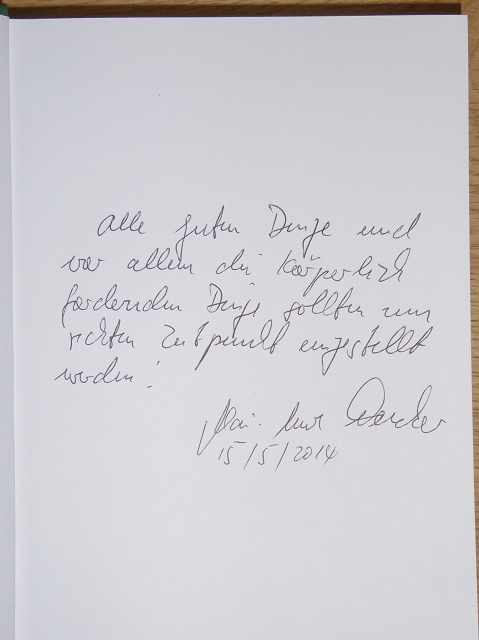 Alle guten Dinge und
vor allem die körperlich
fordernden Dinge sollten zum
richten Zeitpunkt eingestellt
werden!
15/5/2014